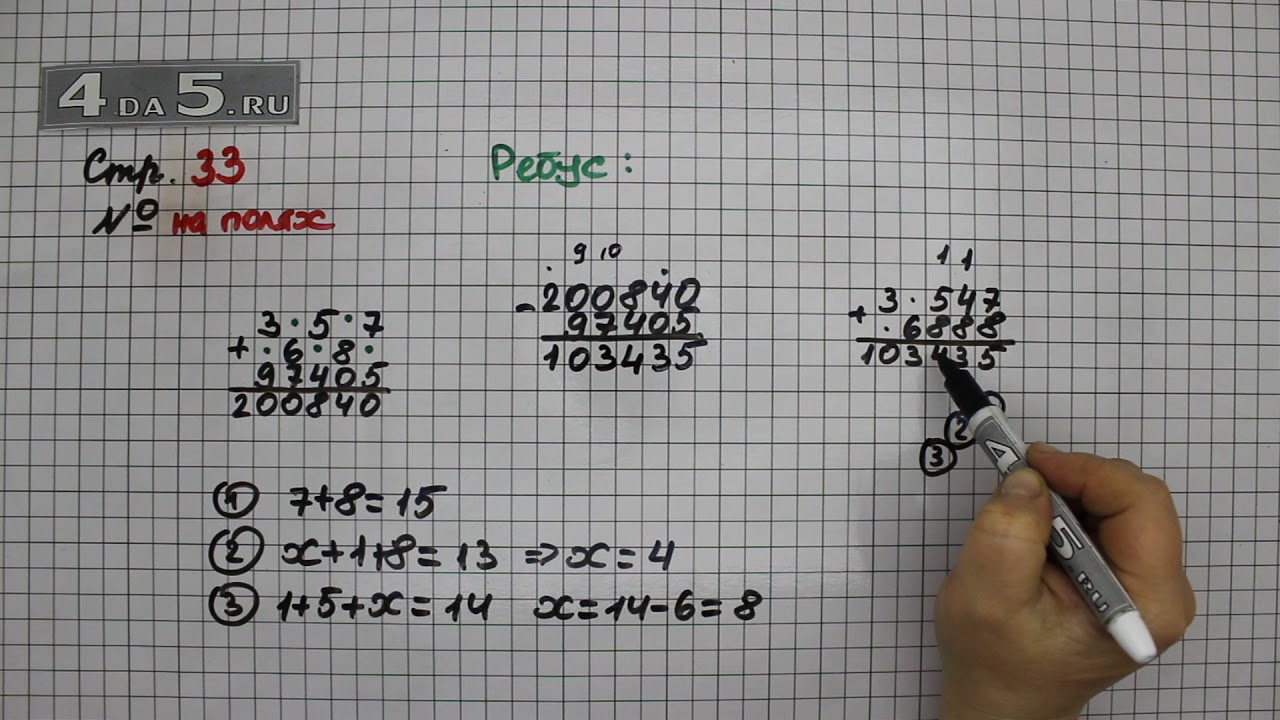 4 DA 5.RU
Стр. 33
№ на полях
Ребус:
3 · 5 · 7
+ · 6 · 8 ·
97405
200840
9 10
200840
- 97405
103435
1 1
3 · 547
+ · 6888
103435
2
3
① 7+8=15
② x+1+8=13 ⇒ x=4
③ 1+5+x=14 x=14-6=8
4
5.RU